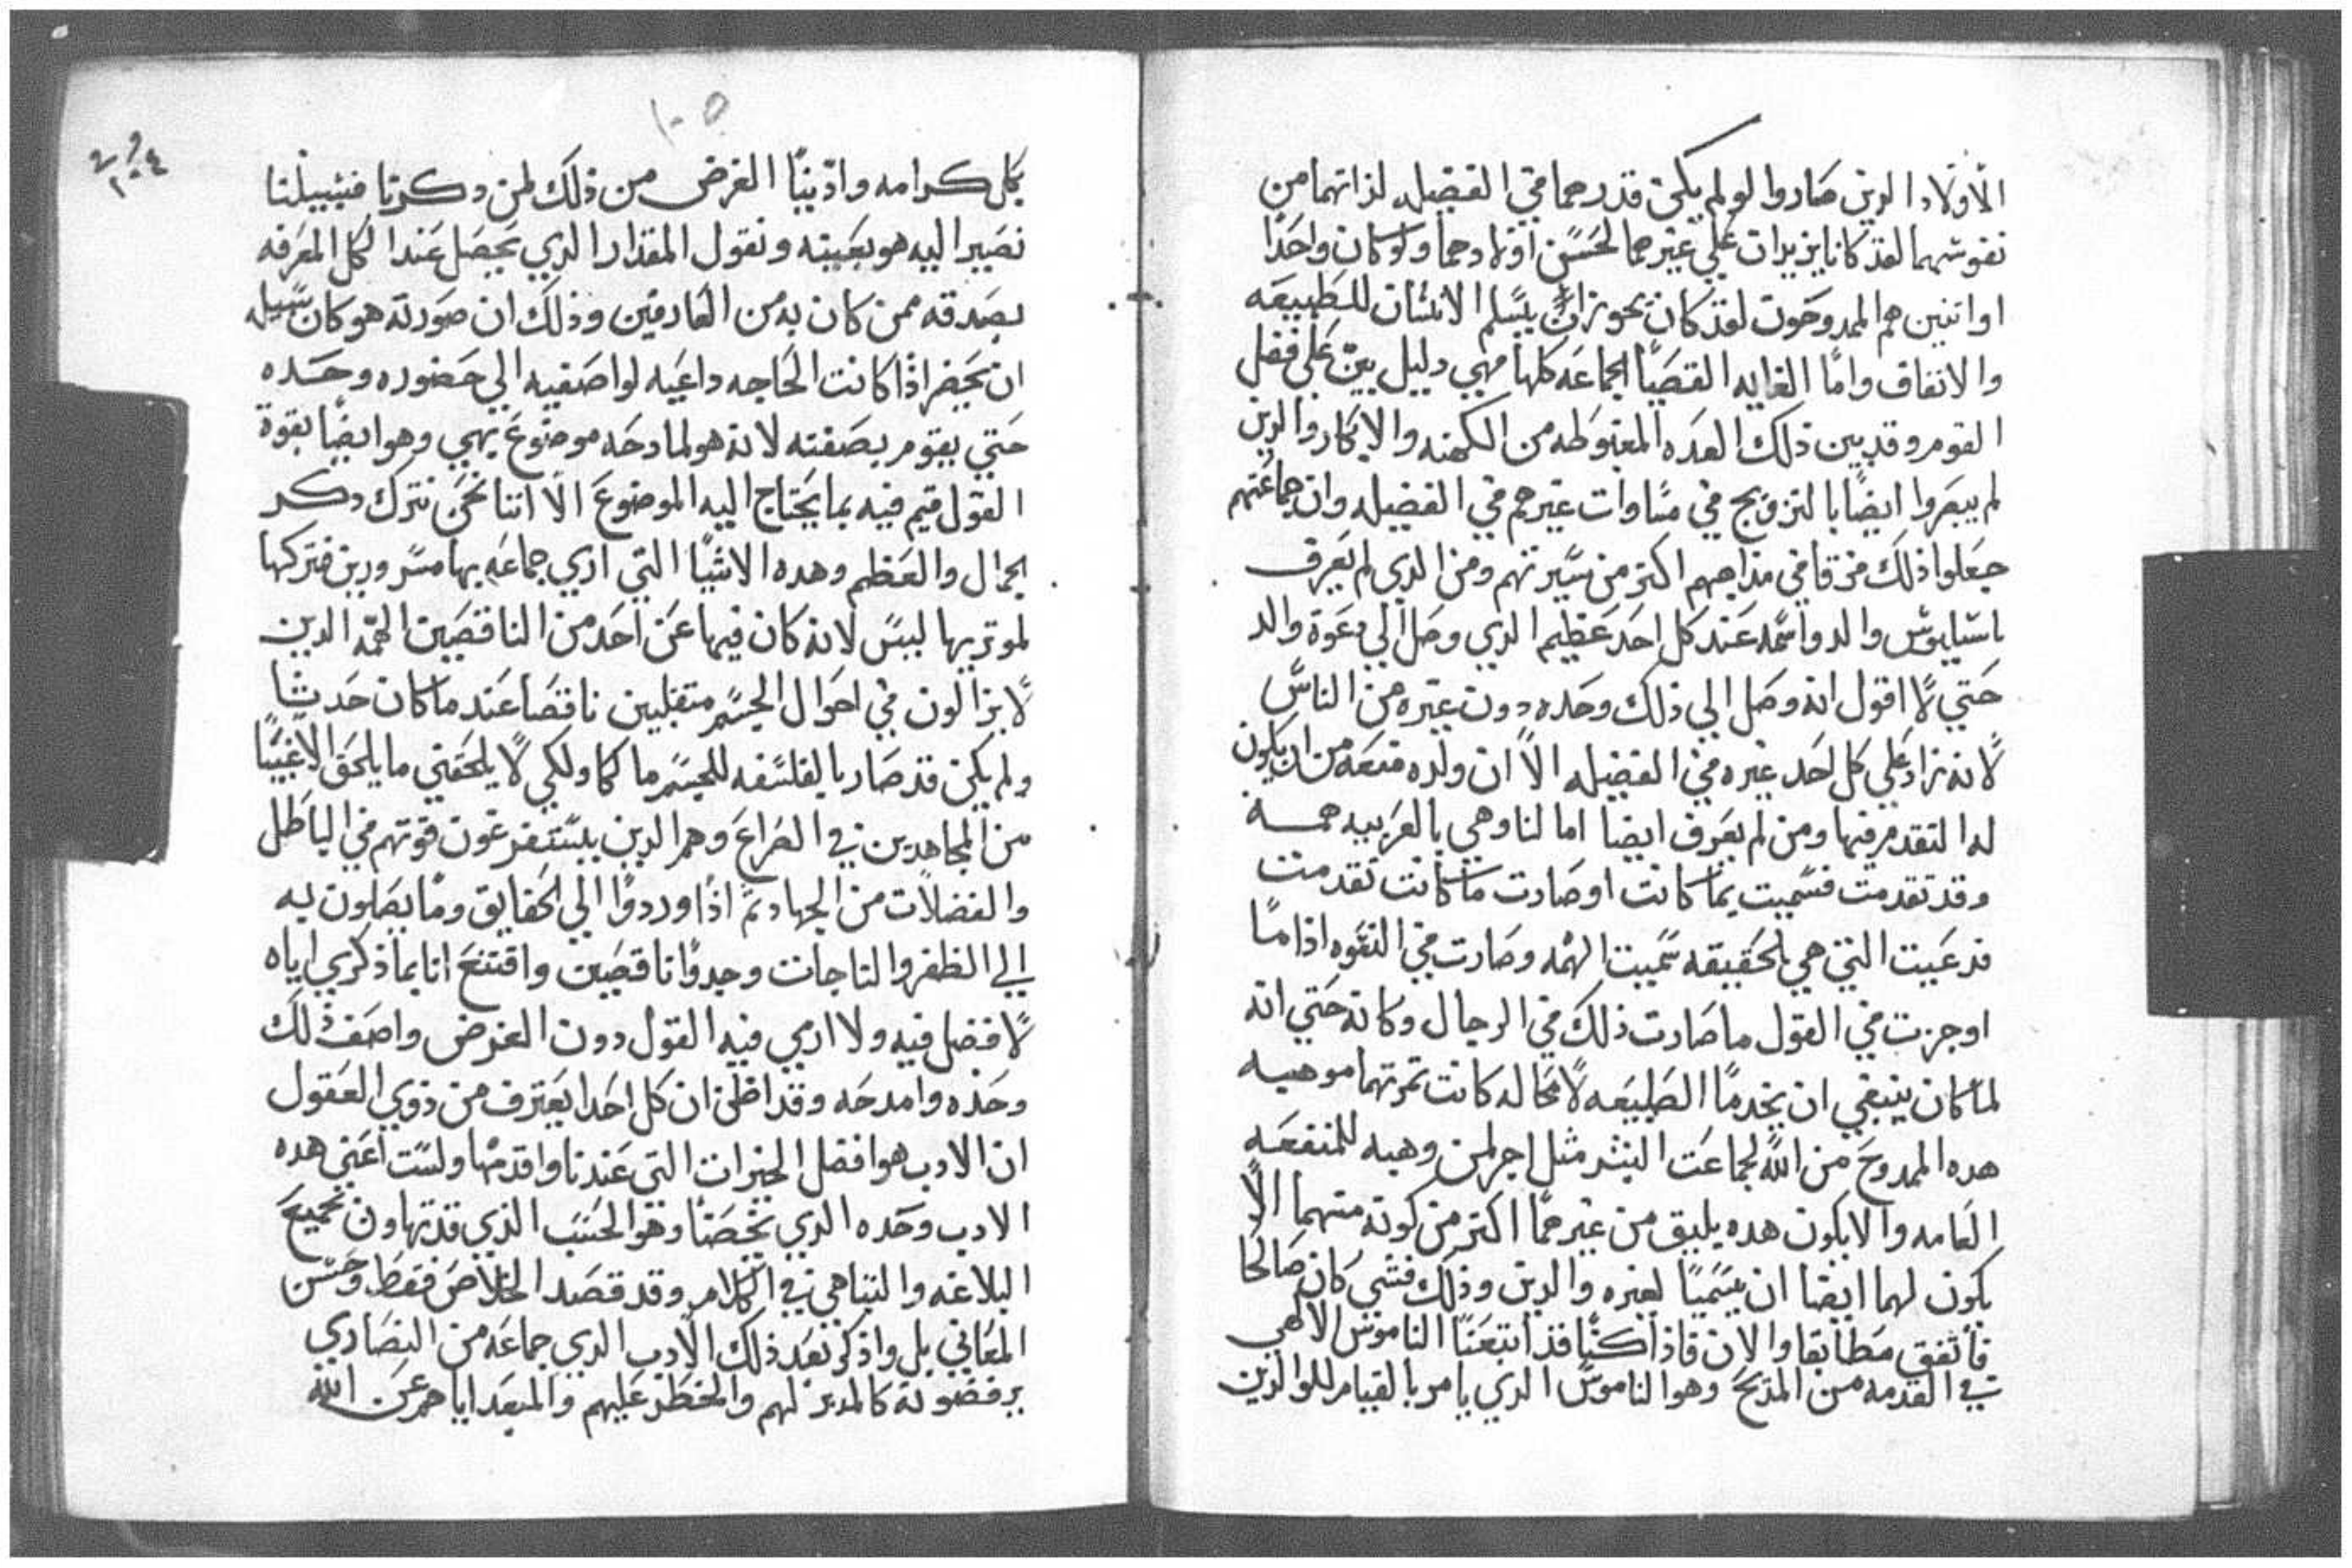 الاولاد الدين صاروا لو لم يكن قدرهما في الفضيله لذاتهما من
نفوسهما لقد كانا يزيدان علي غيرهما لحسن اولادهما ولو كان واحدا
او اتنين هم الممدوحون لقد كان يجوز ان يسلم الانسان للطبيعه
والاتفاق واما الغايه القصيا الجماعه كلها فهي دليل بين علي فضل
القوم وقد بين ذلك العده المغبوطه من الكهنه والابكار والدين
لم يبصروا ايضا بالتزويج في مساوات غيرهم في الفضيله وان جماعتهم
جعلوا ذلك فرقا في مذاهبهم اكتر من سيرتهم ومن الدي لم يعرف
باسيليوس والد واسمه عند كل احد عظيم الدي وصل الي دعوة والد
حتي لا اقول انه وصل الي ذلك وحده دون غيره من الناس
لانه زاد علي كل احد غيره في الفضيله الا ان ولده منعه من ان يكون
له التقدم فيها ومن لم يعرف ايضا امالنا وهي بالعربيه همه
وقد تقدمت فسميت بما كانت او صارت ما كانت تقدمت
فدعيت التي هي بالحقيقه سميت الهمه وصارت في النسوه اذا ما
اوجزت في القول ما صارت ذلك في الرجال وكانه حتي انه
لما كان ينبغي ان يخدما الطبيعه لا محاله كانت تمرتهما موهبه
هده الممدوح من الله لجماعت البشر مثل اجر لمن وهبه للمنفعه
العامه والا يكون هده يليق من غيرهما اكتر من كونه منهما الا
يكون لهما ايضا ان يسميا لغيره والدين وذلك فشي كان صالحا
فاتفق مطابقا والان فاذا كنا قد اتبعنا الناموس الالهي
في القدمه من المديح وهو الناموس الدي يامر بالقيام للوالدين
١٠٥
بكل كرامه وادينا الغرض من ذلك لمن دكرنا فسبيلنا
نصير اليه هو بعينه ونقول المقدار الدي يحصل عند الكل المعرفه
بصدقه ممن كان به من العارفين وذلك ان صورته هو كان سبيله
ان يحضر اذا كانت الحاجه داعيه لواصفيه الي حضوره وحده
حتي يقوم بصفته لانه هو لمادحه موضوع بهي وهو ايضا بقوة
القول قيم فيه بما يحتاج اليه الموضوع الا اننا نحن نترك دكر
الجمال والعظم وهده الاشيا التي اري جماعه بها مسرورين فنتركها
لموتريها ليس لانه كان فيها عن احد من الناقصين الهمه الدين
لا يزالون في احوال الجسم متقلبين ناقصا عند ما كان حدثا
ولم يكن قد صار بالفلسفه للجسم ماكما ولكي لا يلحقني ما يلحق الاغبيا
من المجاهدين في الصراع وهم الدين يستفرغون قوتهم في الباطل
والفضلات من الجهاد ثم اذا وردوا الي الحقايق وما يصلون به
الي الظفر والتاجات وجدوا ناقصين واقتنع انا بما ذكري اياه
لا فضل فيه ولا ارمي فيه القول دون الغرض واصف ذلك
وحده وامدحه وقد اظن ان كل احد ايعترف من ذوي العقول
ان الادب هو افضل الخيرات التي عندنا واقدمها ولست اعني هده
الادب وحده الدي يخصنا وهو الحسب الذي قد تهاون بجميع
البلاغه والتباهي في الكلام وقد قصد الخلاص فقط وحسن
المعاني بل واذكر بعد ذلك الادب الدي جماعه من النصاري
يرفضونه كالمدبر لهم والمخطر عليهم والمبعد اياهم عن الله